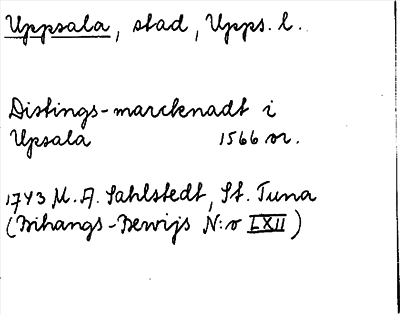 Uppsala, stad, Upps. l.
Distings-marcknadt i
Upsala 1566 or.
1743 M. A. Sahlstedt, St. Tuna
(Bihangs-Bewijs N:o LXII)